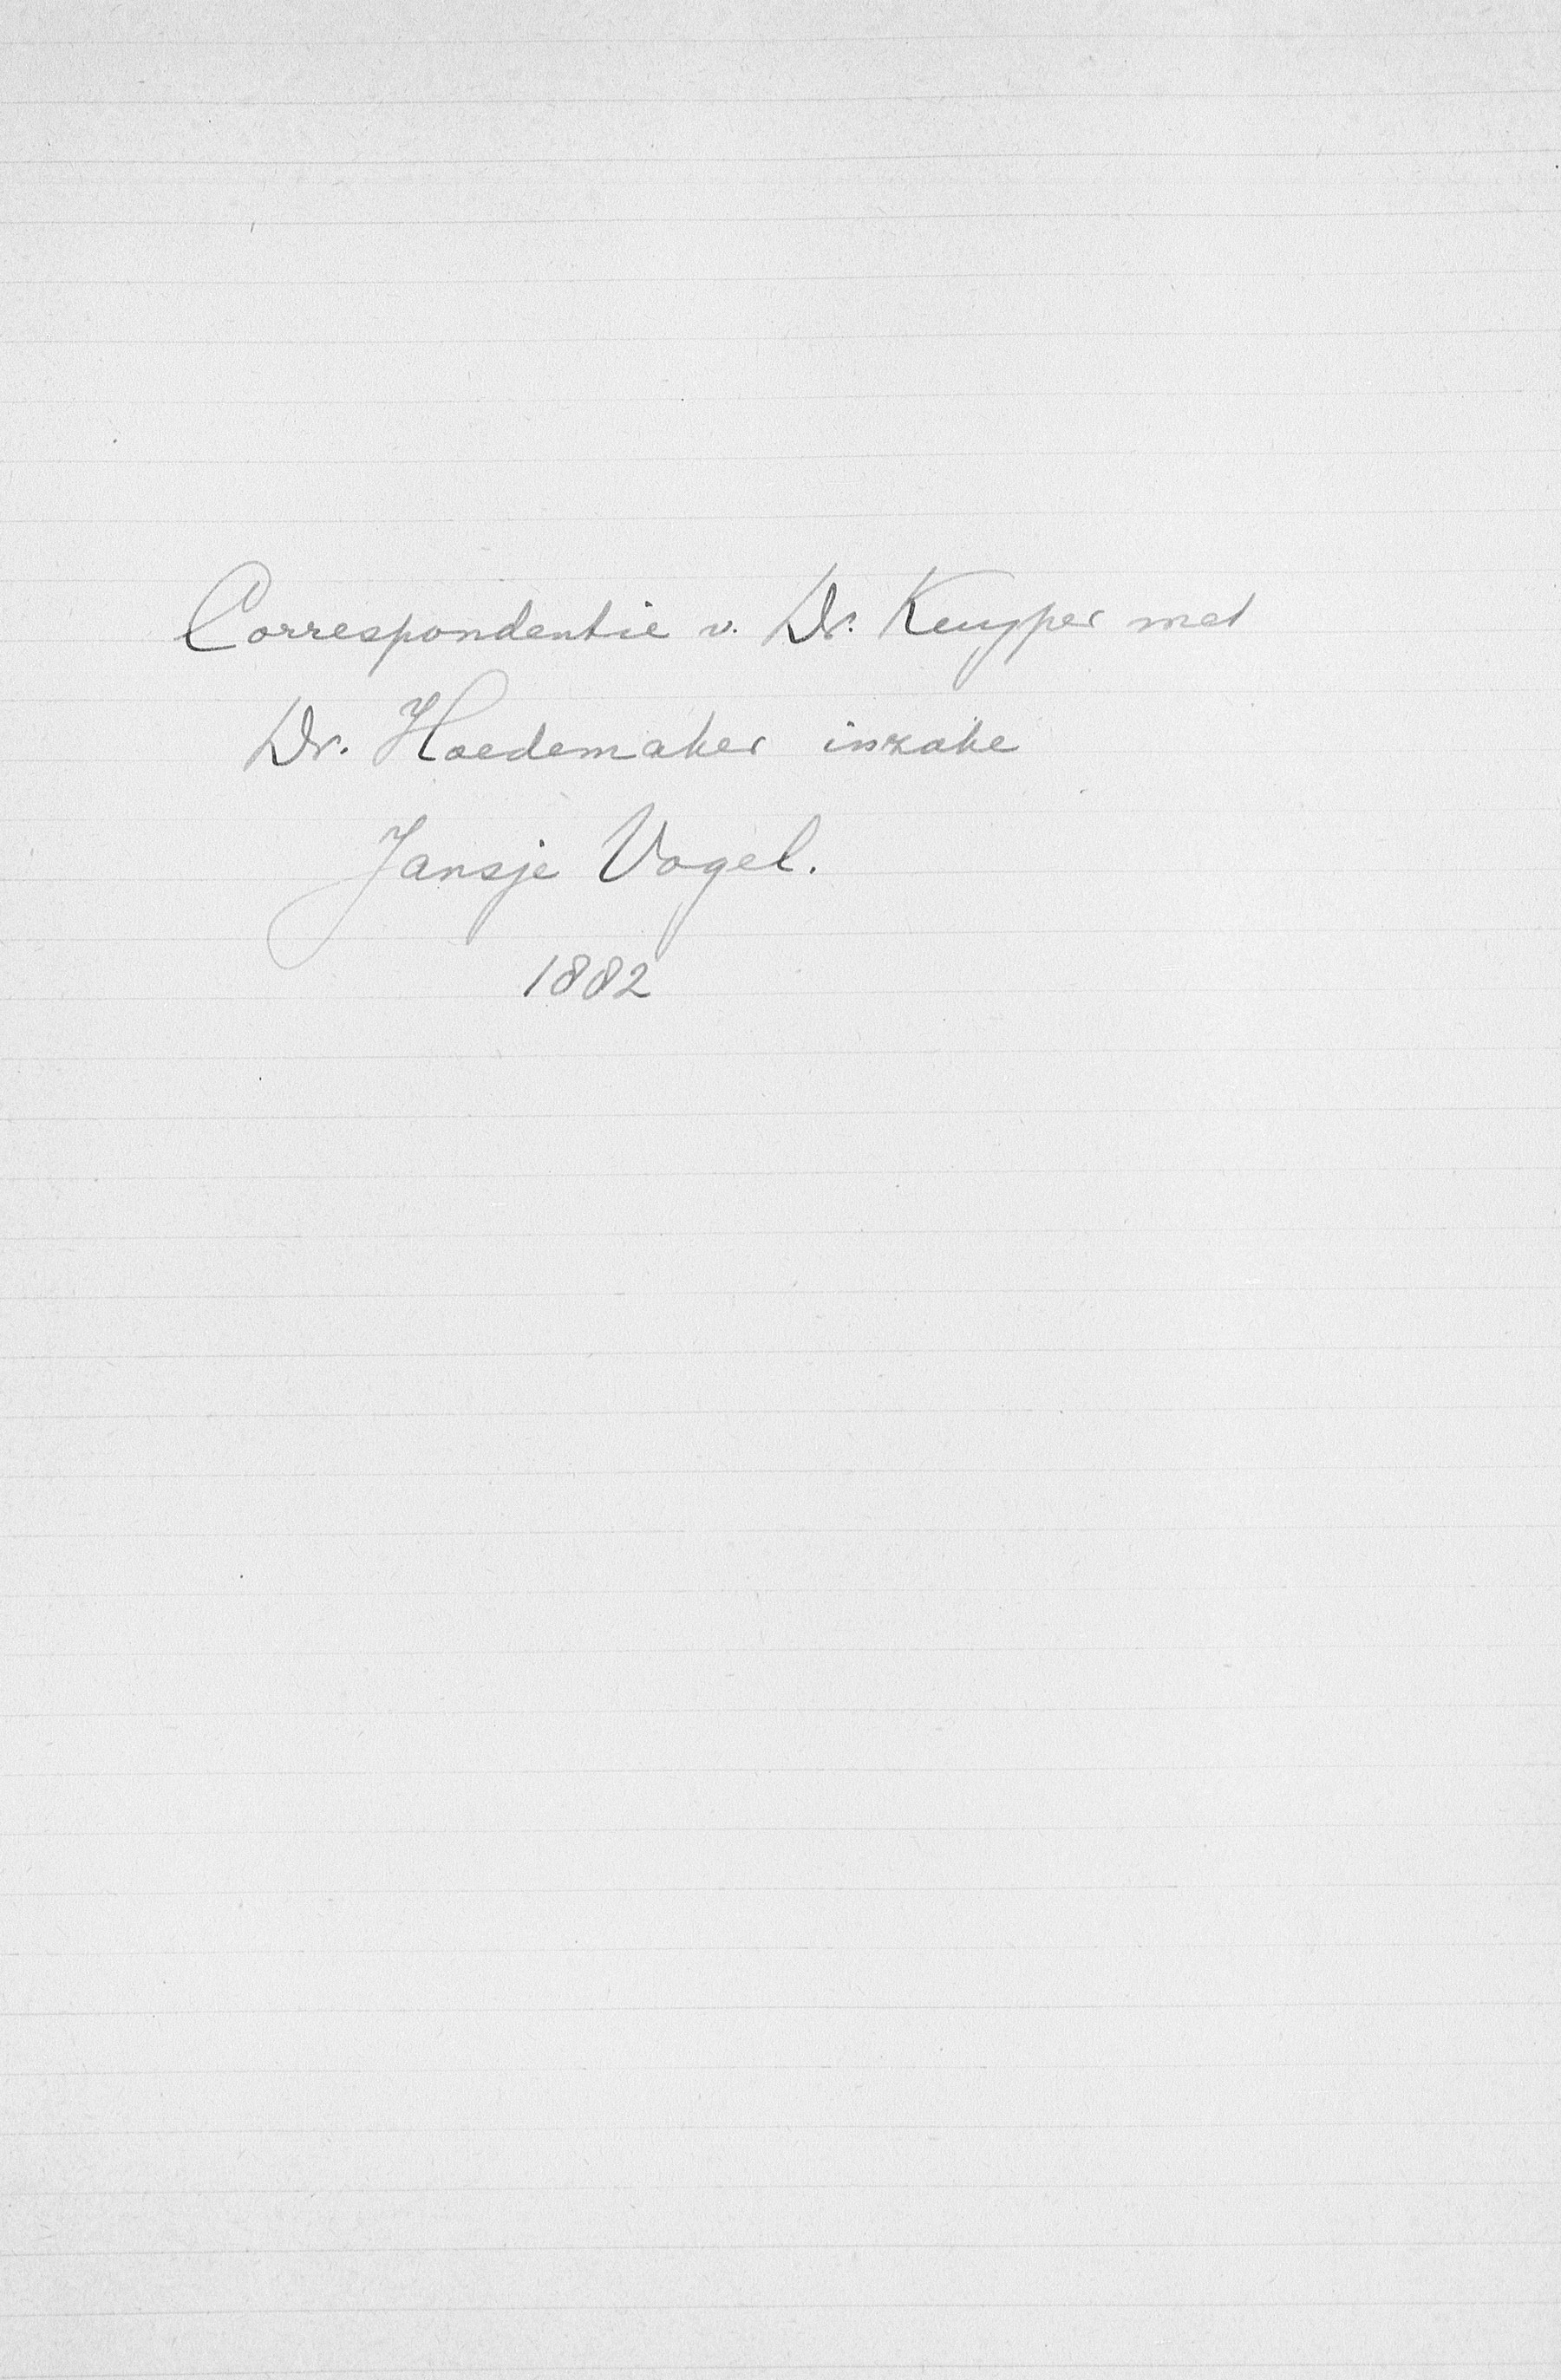 Correspondentie v. Dr. Kuyper met
Dr. Hoedemaker inzake
Jansje Vogel.
1882